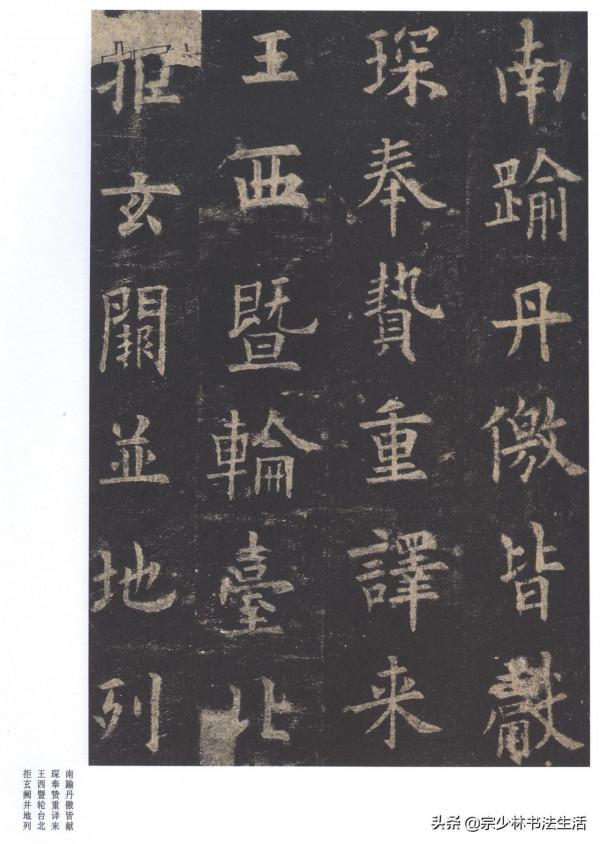 南踰丹儌皆獻
琛奉贄重譯来
王西暨輪臺北
拒玄闕並地列
南踰丹徼皆献
琛奉贽重译来
王西暨轮台北
拒玄阙并地列
头条 @宗少林书法生活